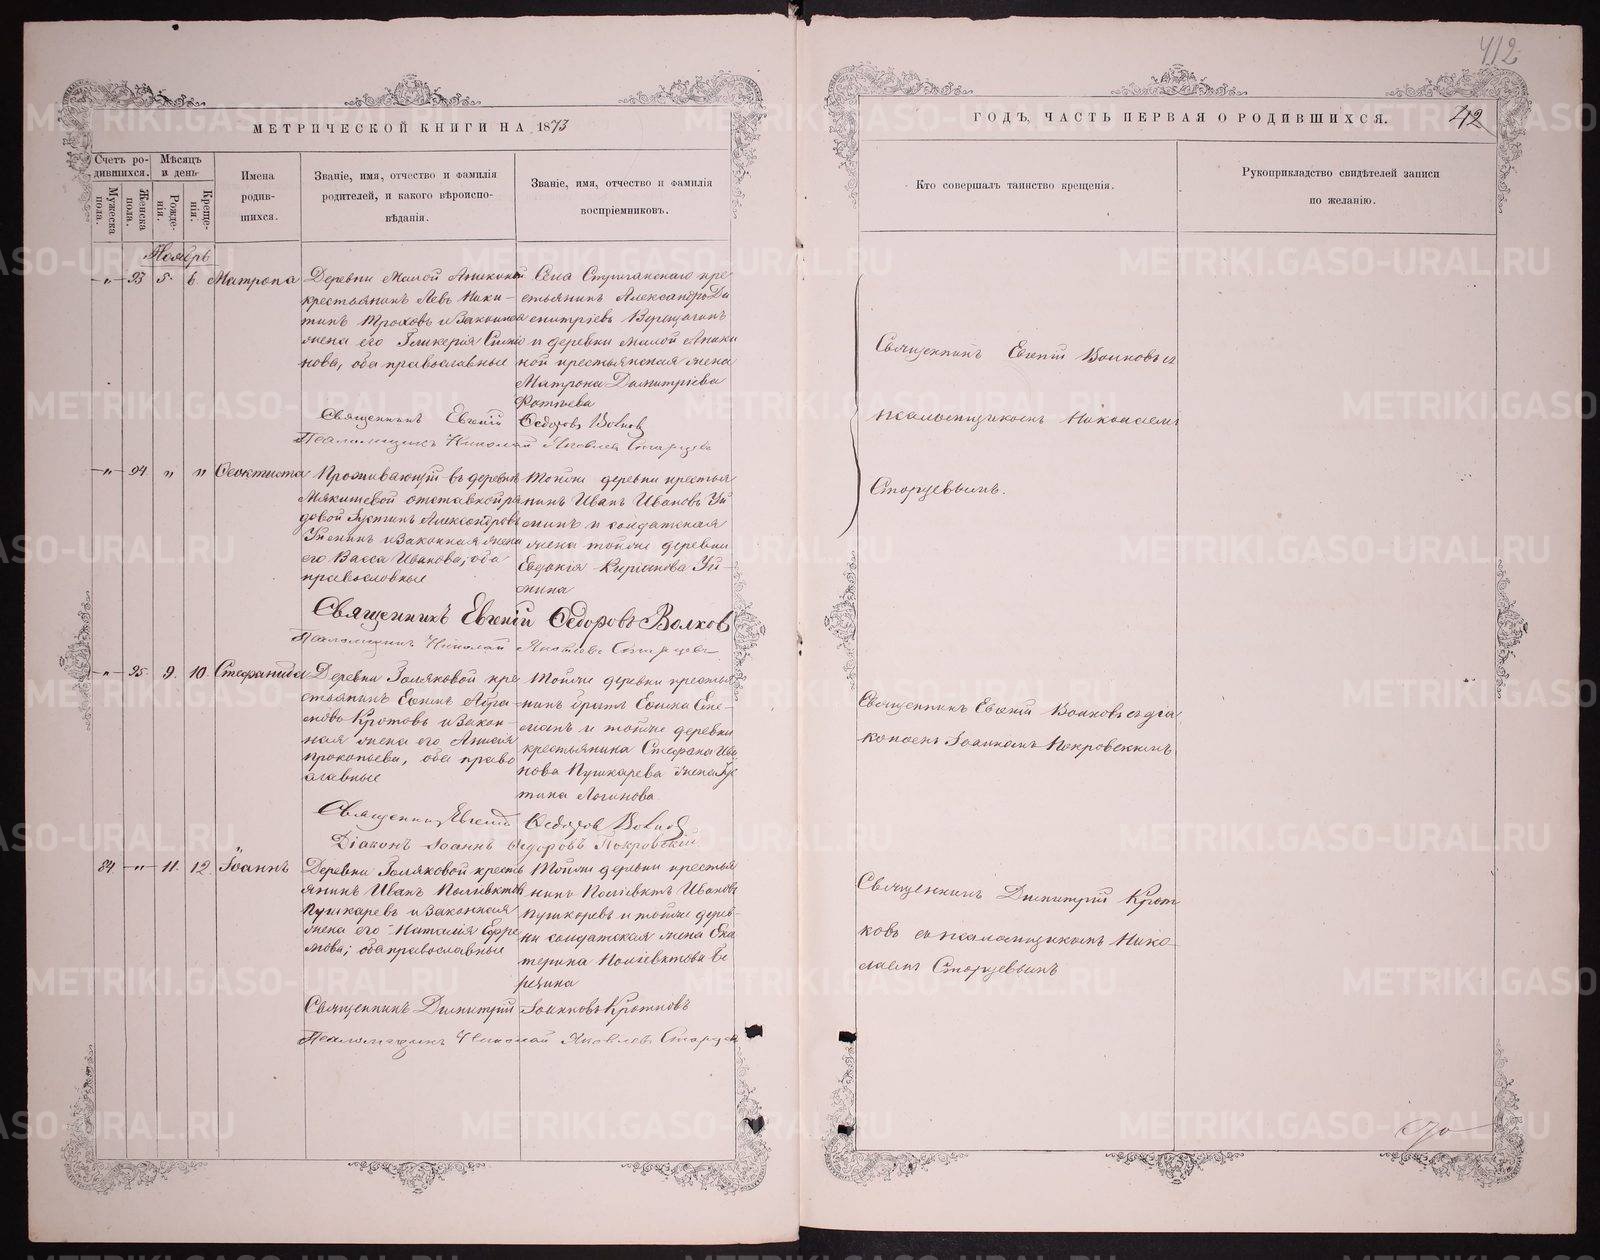 412
МЕТРИЧЕСКОЙ КНИГИ НА 1873
ГОДЪ, ЧАСТЬ ПЕРВАЯ О РОДИВШИХСЯ.
42
Счетъ ро-
дившихся.
Мѣсяцъ
и день
Мужеска
пола.
Женска
пола.
Рожде-
нія.
Креще-
нія.
Имена
родив-
шихся.
Званіе, имя, отчество и фамилія
родителей, и какого вѣроиспо-
вѣданія.
Званіе, имя, отчество и фамилія
воспріемниковъ.
Кто совершалъ таинство крещенія.
Рукоприкладство свидѣтелей записи
по желанію.
Ноябрь
" 93 5. 6. Матрона
Деревни Малой
крестьянинъ Левъ Ники-
тинъ Троховъ и законная
жена его Гликерия
нова, оба православные
Села Стриганскаго кре
стьянинъ Александръ Ди
митріевъ Верещагинъ
и деревни Малой
кой крестьянская жена
Матрона Димитріева
Фотѣева
Священникъ Евгеній Ѳедоровъ Волковъ
Псаломщикъ Николай Яковлевъ Старцевъ
Священникъ Евгеній Волковъ съ
псаломщикомъ Николаемъ
Старцевымъ.
" 94 " " Ѳеоктиста
Проживающій въ деревнѣ
Мякишевой отставной ря
довой Іустинъ Александровъ
и законная жена
его Васса Иванова, оба
православные
Тойже деревни крестья
нинъ Иванъ Ивановъ
и солдатская
жена тойже деревни
Евдокія
Священникъ Евгеній Ѳедоровъ Волковъ
Псаломщикъ Николай Яковлевъ Старцевъ
" 95 9. 10. Стефанида
Деревни Голяковой кре
стьянинъ Ефимъ
Кротовъ и закон-
ная жена его Анисія
Прокопьева, оба право
славные
Тойже деревни крестья
нинъ братъ Ефима
и тойже деревни
крестьянина Стефана Ива
нова Пушкарева жена Іус
тина Логинова
Священникъ Евгеній Ѳедоровъ Волковъ
Діаконъ Іоаннъ Ѳедоровъ Покровскій
Священникъ Евгеній Волковъ съ діа
кономъ Іоанномъ Покровскимъ
84 " 11. 12. Іоаннъ
Деревни Голяковой кресть
янинъ Иванъ Поліевктовъ
Пушкаревъ и законная
жена его Наталія Ефре
мова, оба православные
Тойже деревни крестья
нинъ Поліевктъ Ивановъ
Пушкаревъ и тойже дерев-
ни солдатская жена Ека
терина Поліевктова
Священникъ Димитрій Іоанновъ Кротковъ
Псаломщикъ Николай Яковлевъ Старцевъ
Священникъ Димитрій Крот
ковъ съ псаломщикомъ Нико-
лаемъ Старцевымъ
METRIKI.GASO-URAL.RU